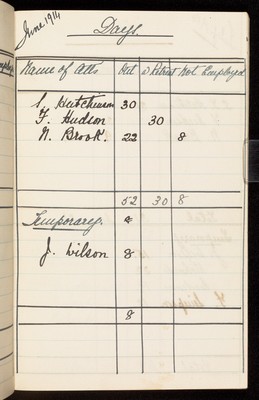 June 1914
Days.
Name of Atts Ret d Retreat Not Employed
S. Hutchinson 30
F. Hudson 30
N. Brook. 22 8
52 30 8
Temporary.
J. Wilson 8
8